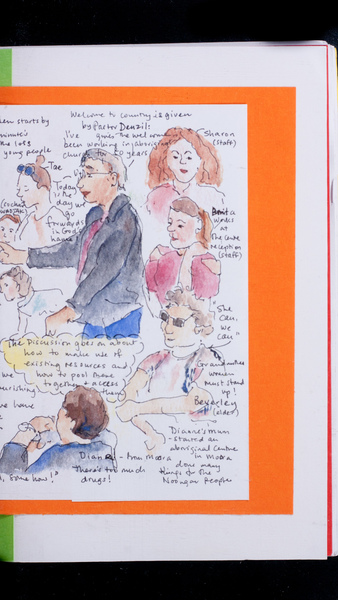 hen starts by
minute's
the loss
young people
Welcome to country is given
by Pastor Denzil:
I've given the welcome
been working in aboriginal
church for 50 years
Sharon
(staff)
Tae
Today
is the
day we
go
forwards
in God's
name
a
works
at
the centre
reception
(staff)
"She
can,
we
can"
The discussion goes on about
how to make use of
existing resources and
how to pool them
together & access
them
we
nourishing
we have
Grandmothers
women
must stand
up!
Beverley
(elder)
Dianne's mum
- started an
aboriginal centre
in Moora
done many
things for the
Noongar People
, some how!"
Dianne - from Moora
there's too much
drugs!